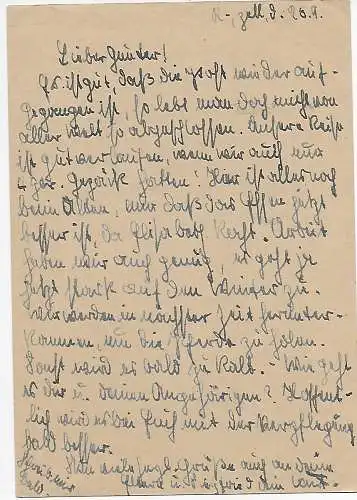 R-zell, d. 26.9.
Lieber Gunter!
Es ist gut, daß die Post wieder auf-
gegangen ist, so lebt man doch nicht von
aller Welt so abgeschlossen. Unsere Reise
ist gut verlaufen, wenn wir auch nur
4 Gepäck hatten! Hier ist alles noch
beim Alten, nur daß das Essen jetzt
besser ist, da Elisabeth kocht. Arbeit
haben wir auch genug, es geht ja
jetzt stark auf den Winter zu.
Wir werden in nächster Zeit herunter-
kommen, um die Pferde zu holen.
Sonst wird es bald zu kalt. - Wie geht
es dir u. deinen Angehörigen? Hoffent-
lich wird es bei Euch mit der Verpflegung
bald besser.
Nun viele herzl. Grüße auch an deine
Eltern u.
Schreib mir
bald.